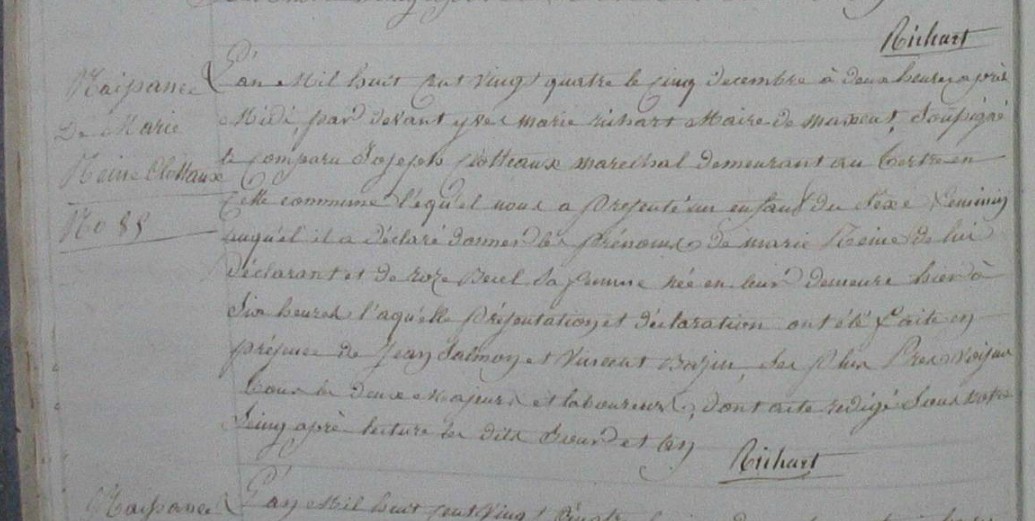 Richart
Naissance
De Marie
Reine Clottaux
No 85
L'an Mil huit cent vingt quatre le cinq decembre à deux heures après
Midi, par devant yves marie richart Maire de maxent, Soussigné
à comparu Joseph Clotteaux marechal demeurant au tertre en
Cette commune lequ'el nous a présenté un enfant du Sexe féminin
auqu'el il a déclaré donner les prénoms de marie Reine de lui
déclarant et de roze Sa femme née en leur demeure hier à
Six heures l'aqu'elle présentation et déclaration ont été faite en
présence de jean Salmon et Vincent Bazin, Ses plus Pres voisins
tous les deux Majeurs et laboureurs, Dont acte redigé Sous notre
Seing après lecture les dits Jour et an
Richart
Naissance
L'an Mil huit cent vingt